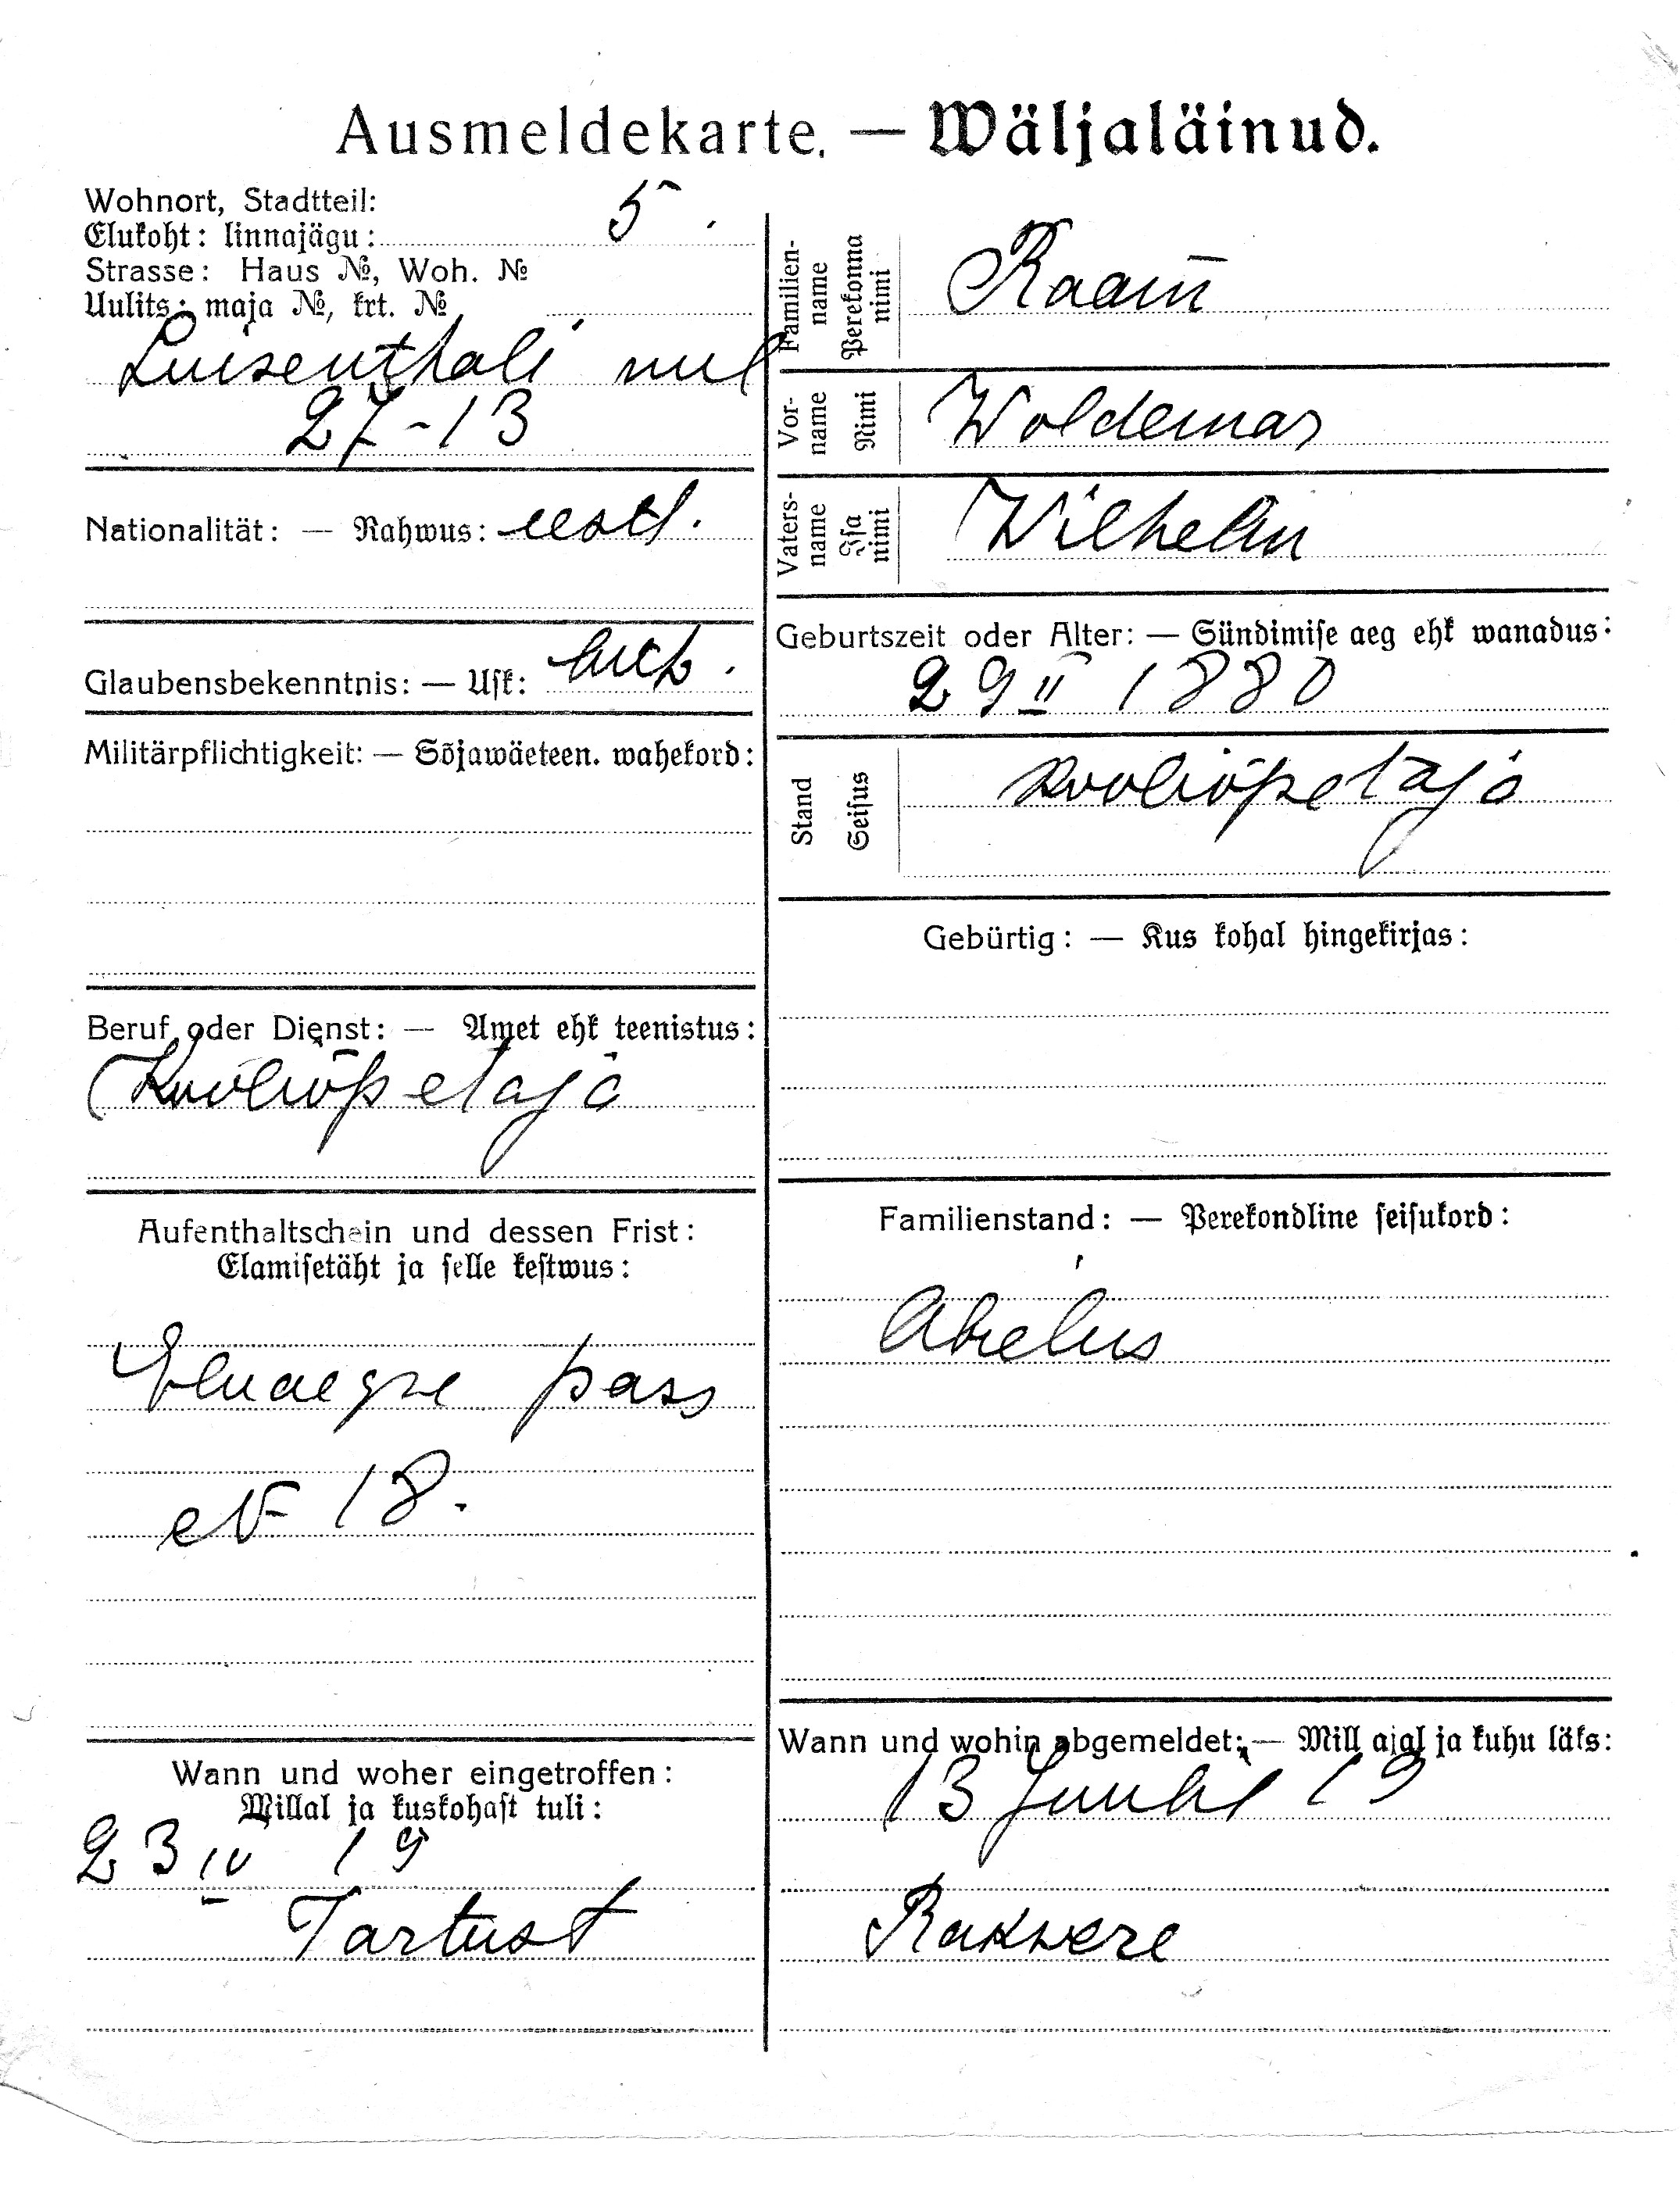 Ausmeldekarte. — Wäljaläinud.
Wohnort, Stadtteil:
Elukoht: linnajägu: 5.
Strasse: Haus №, Woh. №
Uulits: maja №, krt. №
Luisenthali uul
27-13
Nationalität: — Rahwus: eestl.
Glaubensbekenntnis: — Usk: luth.
Militärpflichtigkeit: — Sõjawäeteen. wahekord:
Beruf oder Dienst: — Amet ehk teenistus:
Kooliõpetaja
Aufenthaltschein und dessen Frist:
Elamisetäht ja selle kestwus:
Eluaegne pass
№ 18.
Wann und woher eingetroffen:
Millal ja kuskohast tuli:
23 IV 19
Tartust
Familien-
name
Perekonna
nimi
Raam
Vor-
name
Nimi
Woldemar
Vaters-
name
Isa
nimi
Wilhelm
Geburtszeit oder Alter: — Sündimise aeg ehk wanadus:
29 II 1880
Stand
Seisus
kooliõpetaja
Gebürtig: — Kus kohal hingekirjas:
Familienstand: — Perekondline seisukord:
Abielus
Wann und wohin abgemeldet: — Mill ajal ja kuhu läks:
13 Juuli 19
Rakwere